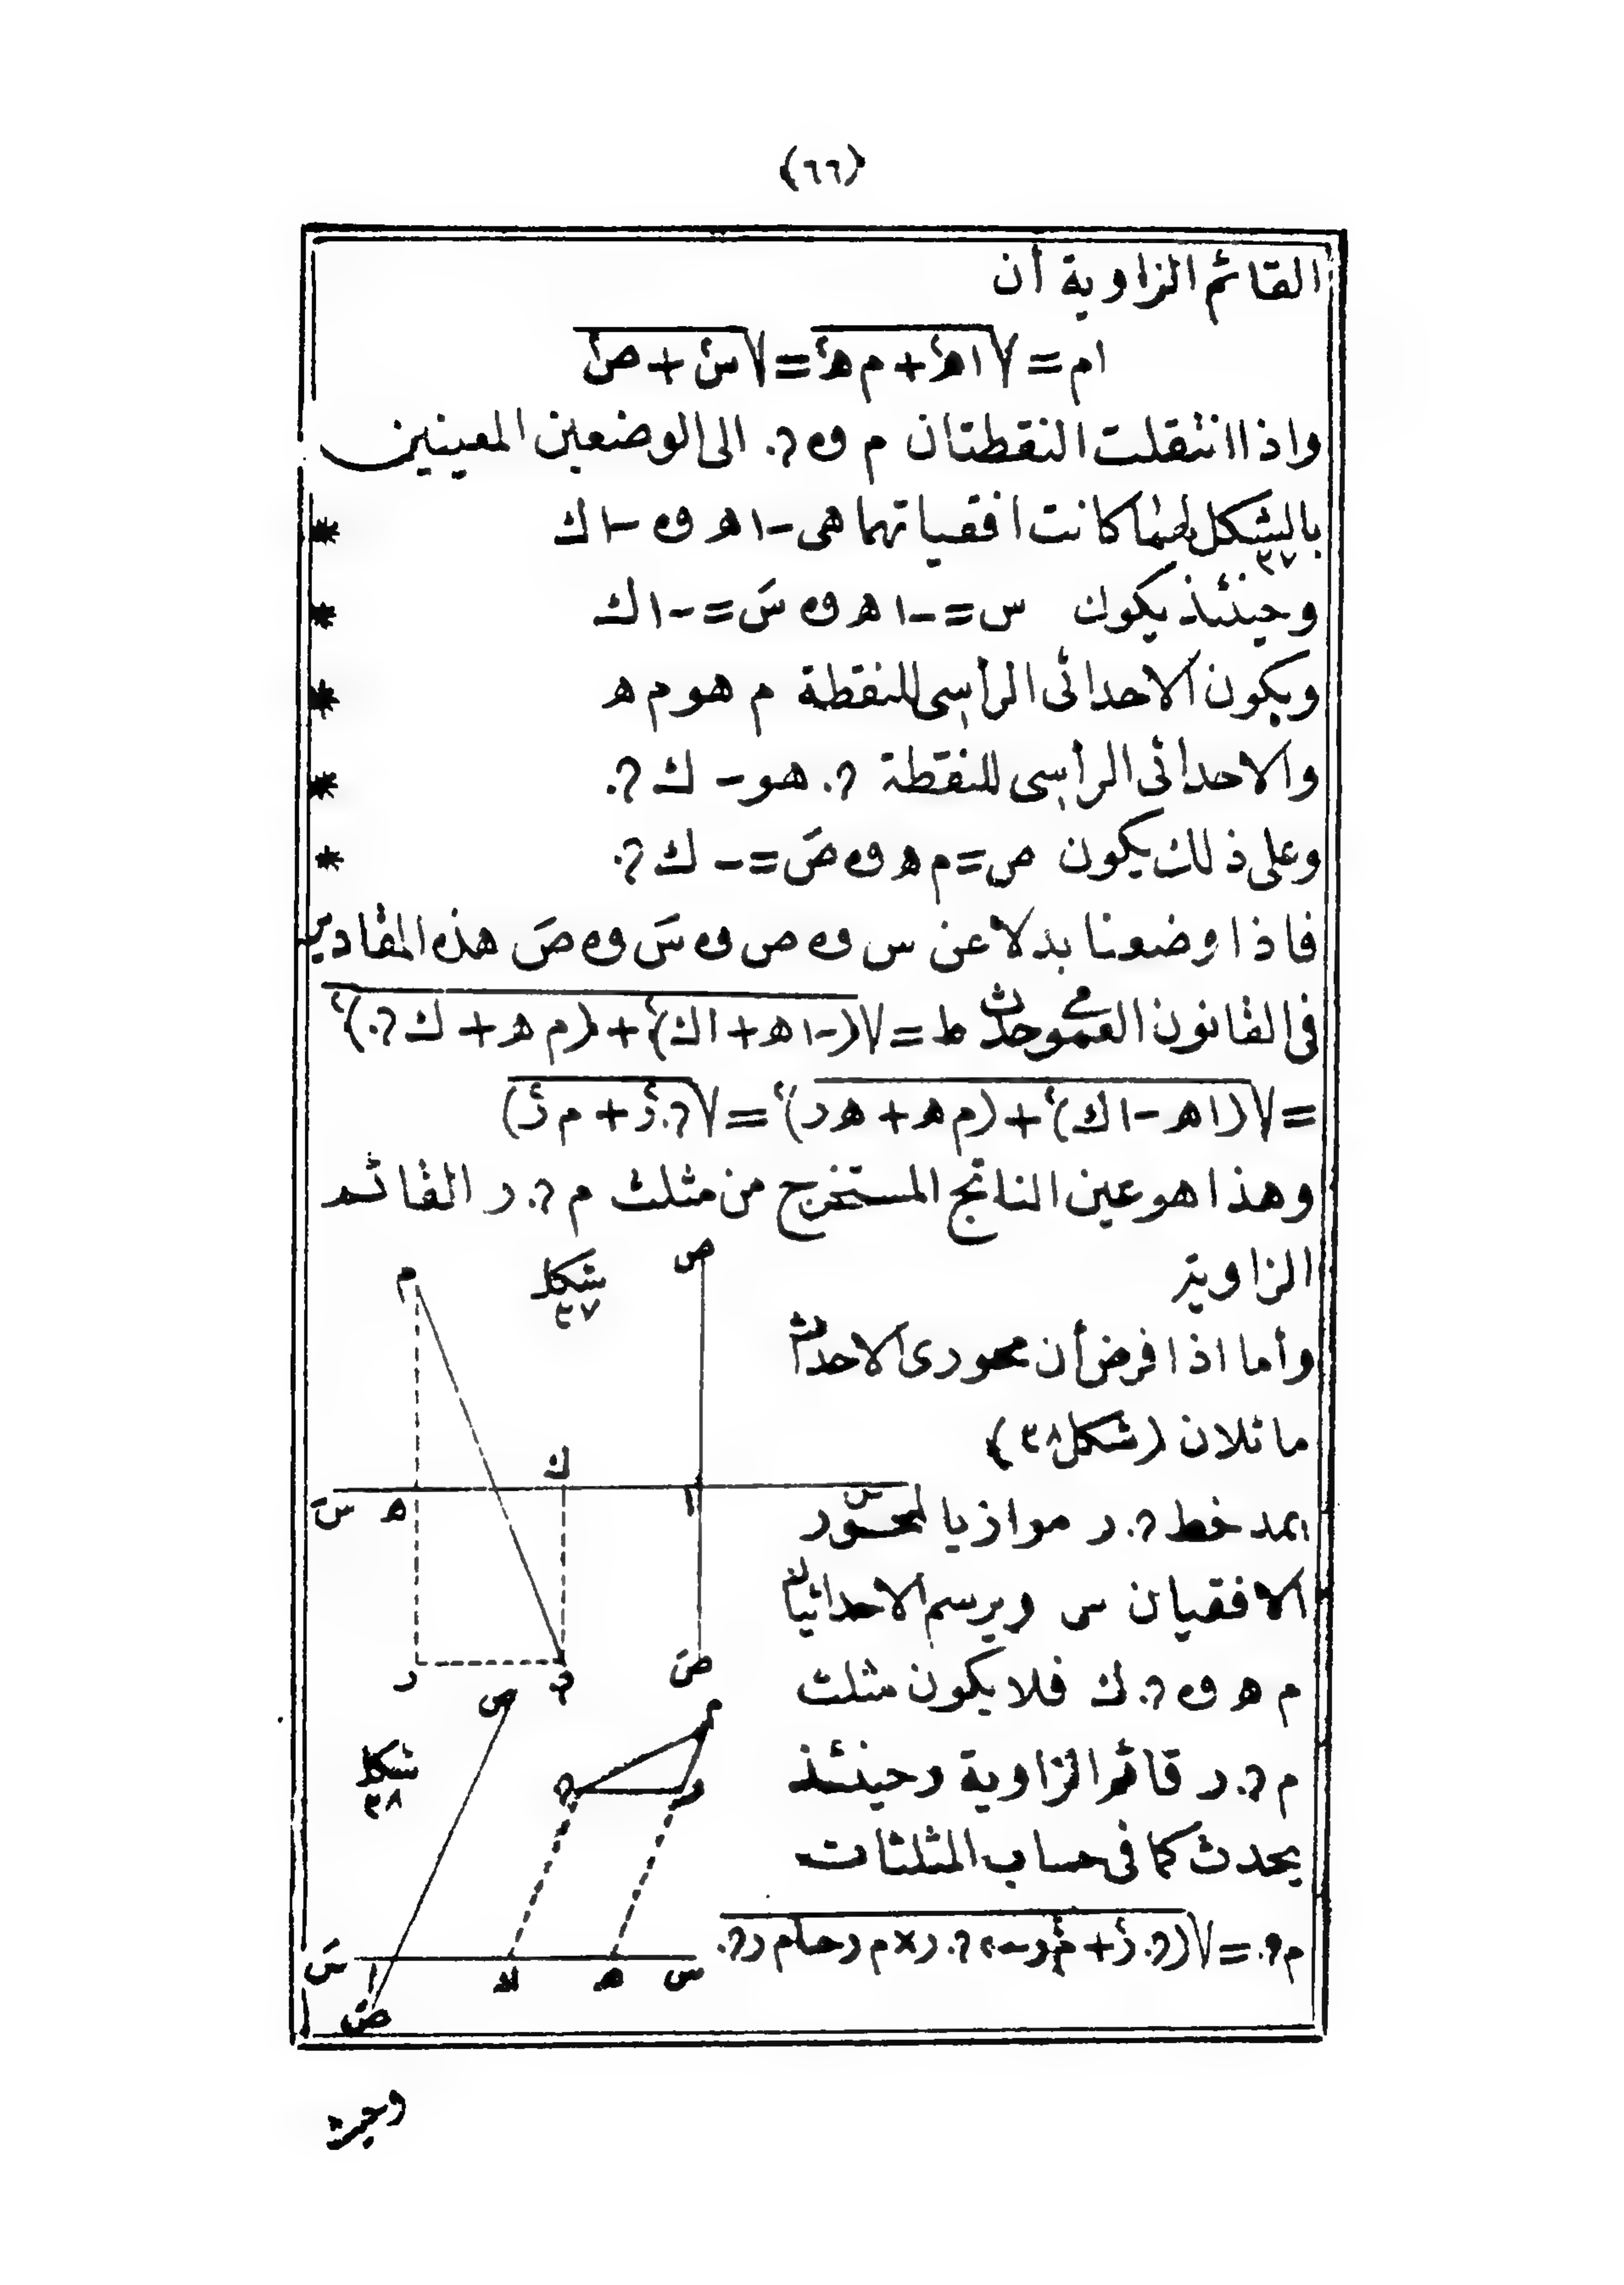 (٦٦)
القائم الزاوية أن
ام = √اه٢ + م ه٢ = √س٢ + ص٢
واذا انتقلت النقطتان م و ? الى الوضعين المعينين
بالشكل ٣٧ كانت افقياتهما هى -اه و -اك *
وحينئذ يكون س = -اه و سَ = -اك *
ويكون الاحداثى الرأسى للنقطة م هو م ه *
والاحداثى الرأسى للنقطة ? هو - ك ? *
وعلى ذلك يكون ص = م ه و صَ = - ك ? *
فاذا وضعنا بدلا عن س و ص و سَ و صَ هذه المقادير
فى القانون العمومى حدث ط = √(-اه + اك)٢ + (م ه + ك ?)٢
= √(اه - اك)٢ + (م ه + ه ر)٢ = √(? ر٢ + م ر٢)
وهذا هو عين الناتج المستخرج من مثلث م ? ر القائم
الزاوية
شكل ٣٧
م
ص
ك
سَ ه ا س
ر ? صَ
وأما اذا فرض أن محورى الاحداث
مائلان (شكل ٣٨)
يمد خط ? ر موازيا لمحور
الافقيان س ويرسم الاحداثيان
م ه و ? ك فلا يكون مثلث
م ? ر قائم الزاوية وحينئذ
يحدث كما فى حساب المثلثات
م ? = √(? ر٢ + م ر٢ - ٢ ? ر × م ر حتا م ر ?
شكل ٣٨
ص م
? ر
سَ ا ك ه س
صَ
وحيث